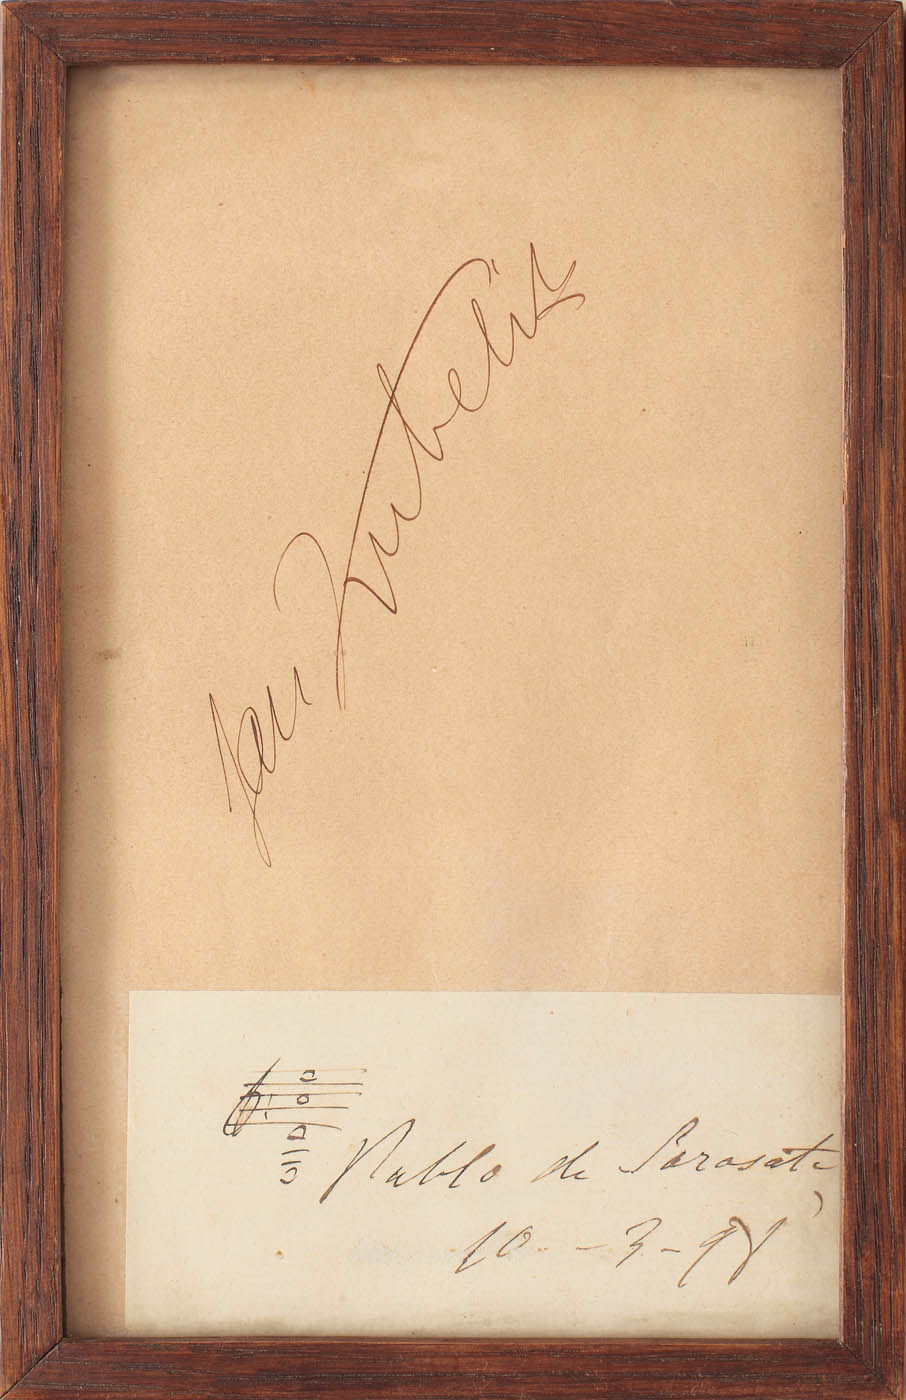 Jan Kubelik
Pablo de Sarasate
10 - 3 - 98